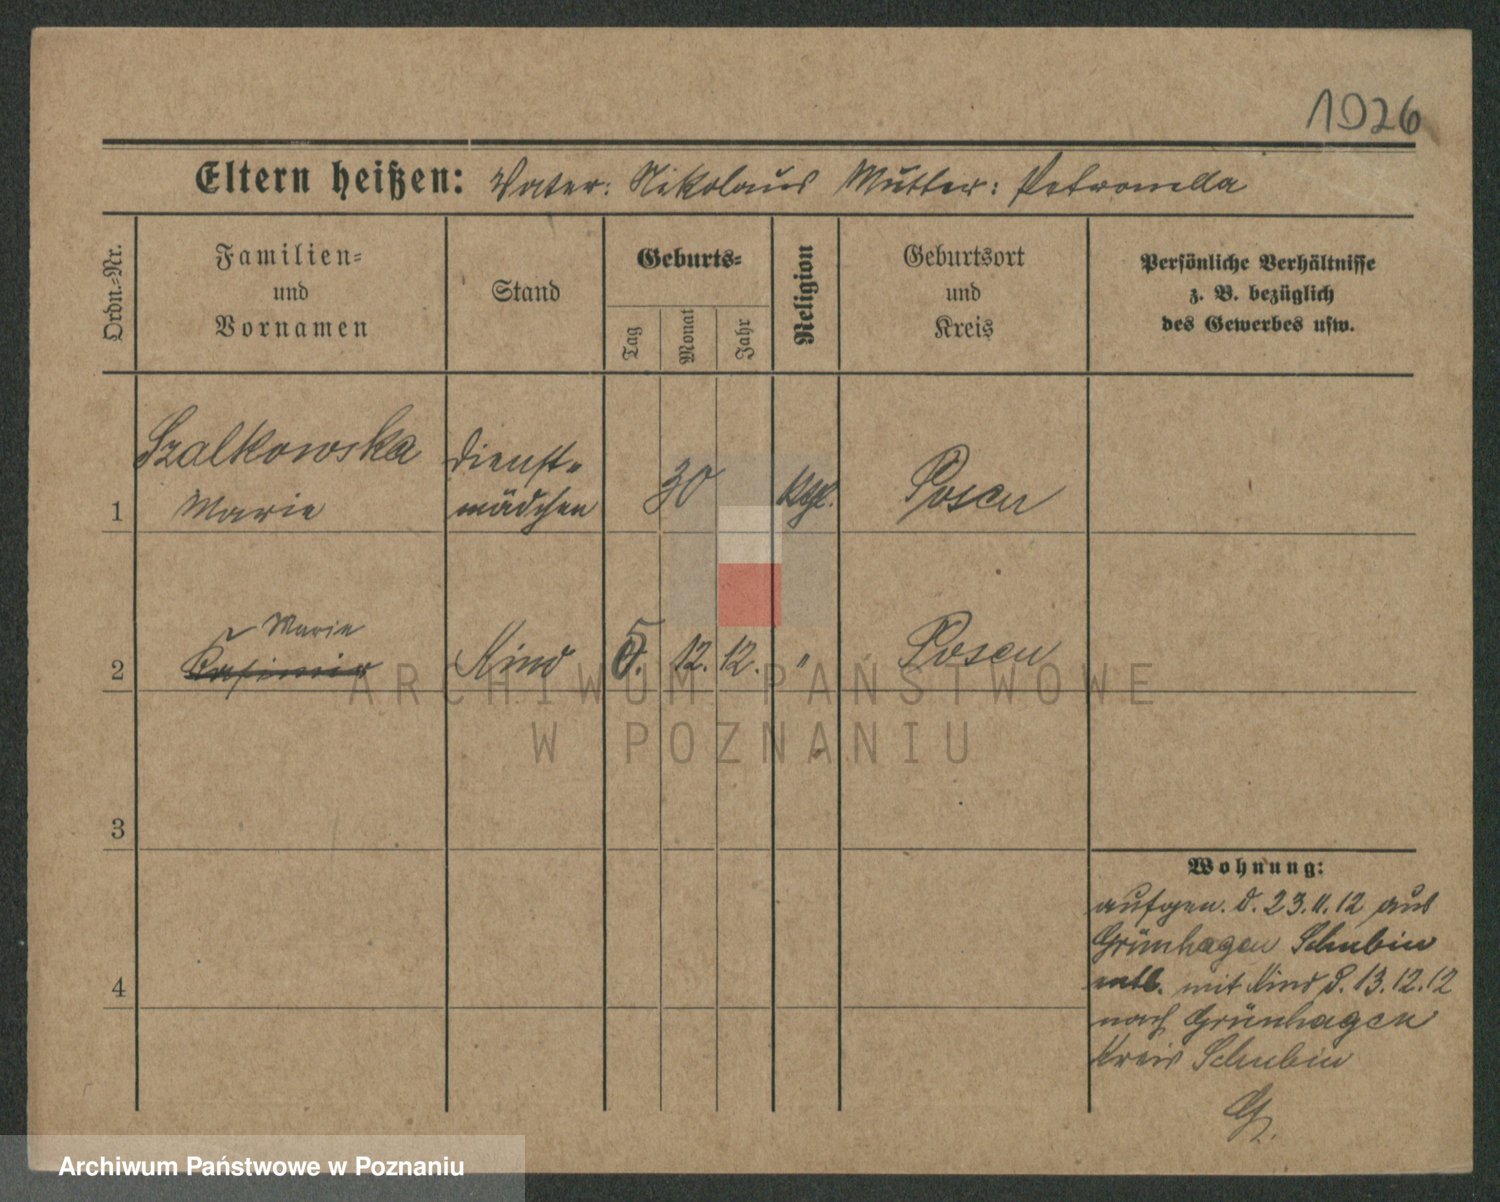 1926
Eltern heißen: Vater: Nikolaus Mutter: Petronella
Ordn.-Nr.
Familien-
und
Vornamen
Stand
Geburts-
Tag
Monat
Jahr
Religion
Geburtsort
und
Kreis
Persönliche Verhältnisse
z. B. bezüglich
des Gewerbes usw.
Szalkowska
Marie
Dienst-
mädchen
1
30
ktgl.
Posen
Marie
2
Casimir
Kind
5. 12. 12. "
Posen
3
Wohnung:
aufgen. d. 23.11.12 aus
Grünhagen Schubin
entl. mit Kind d. 13.12.12
4
nach Grünhagen
Kreis Schubin
ARCHIWUM PAŃSTWOWE
W POZNANIU
Archiwum Państwowe w Poznaniu